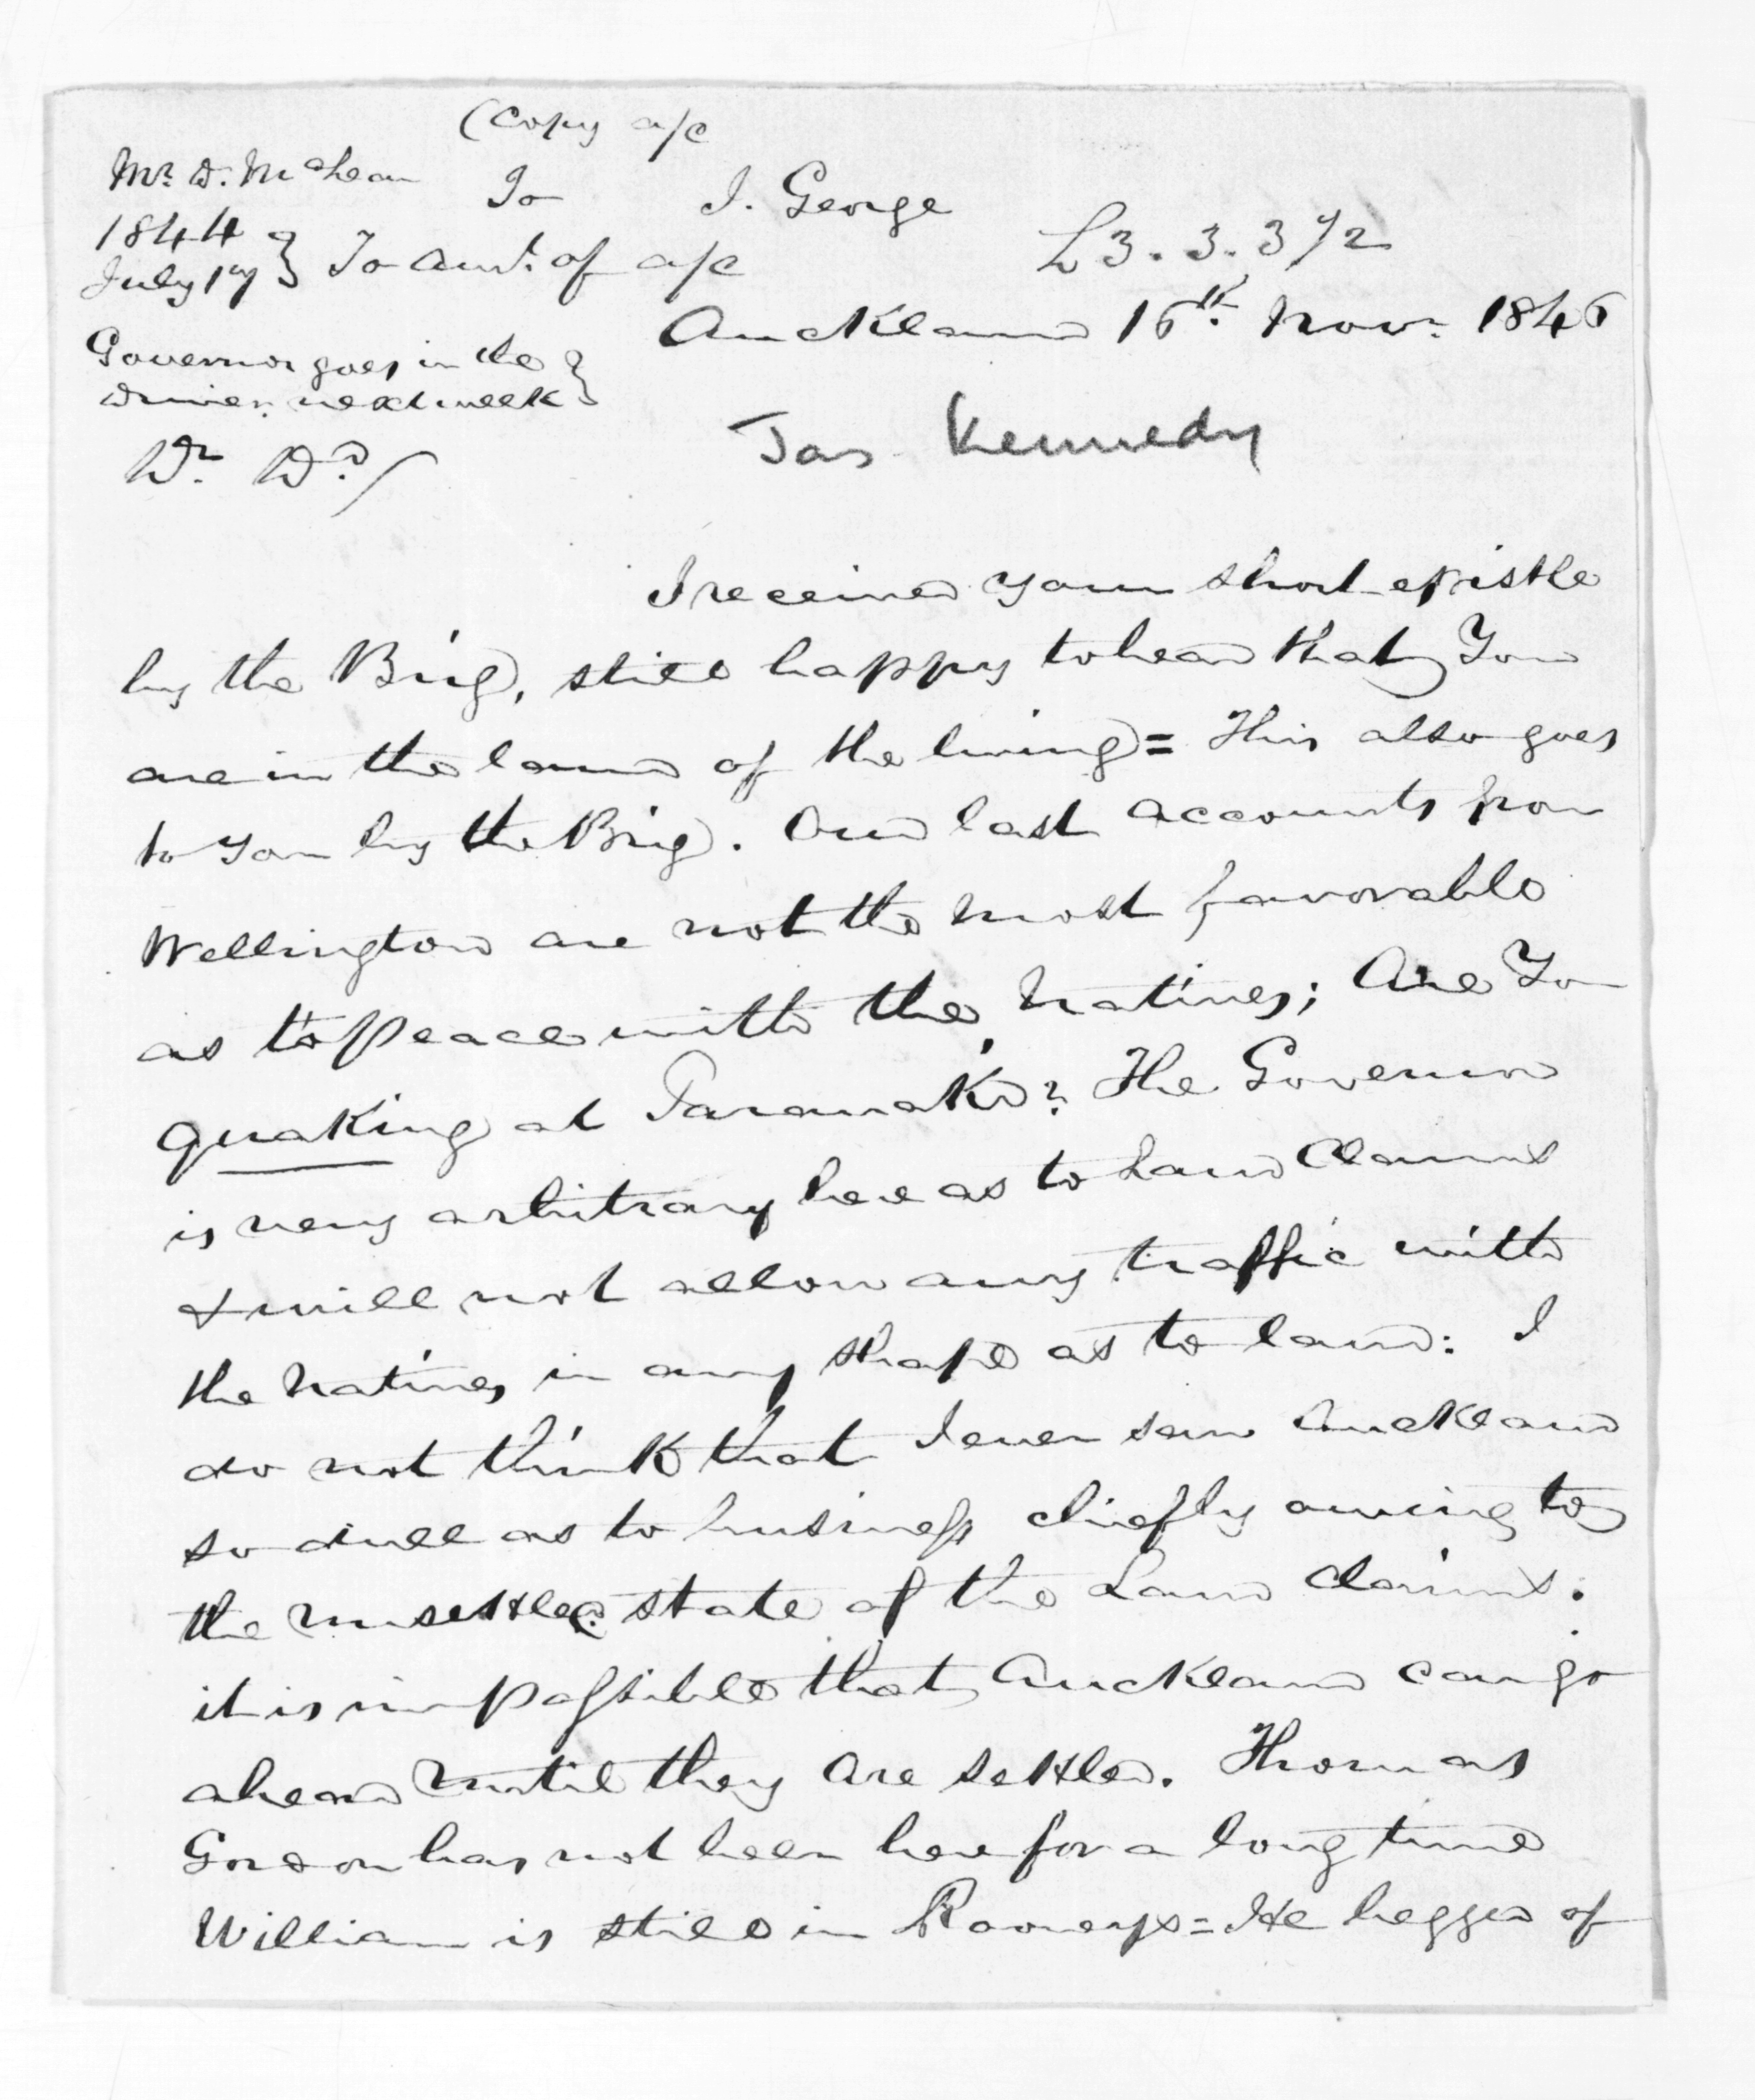 (Copy a/c
Mr. D. McLean To J. George
1844 } To Amt. of a/c £3. 3. 3 1/2
July 17
Auckland 16th. Novr. 1846
Governor goes in the }
Driver next week
Jas Kennedy
Dr. Dd/
I received your short epistle
by the Brig, still happy to hear that You
are in the land of the living = This also goes
to You by the Brig. Our last accounts from
Wellington are not the most favorable
as to peace with the Natives; Are You
quaking at Taranaki? The Governor
is very arbitrary here as to Land Claims
& will not allow any traffic with
the Natives in any shape as to land: I
do not think that I ever saw Auckland
so dull as to business chiefly owing to
the unsettled state of the Land Claims:
it is impossible that Auckland can go
ahead until they are settled. Thomas
Gordon has not been here for a long time
William is still in = He begged of